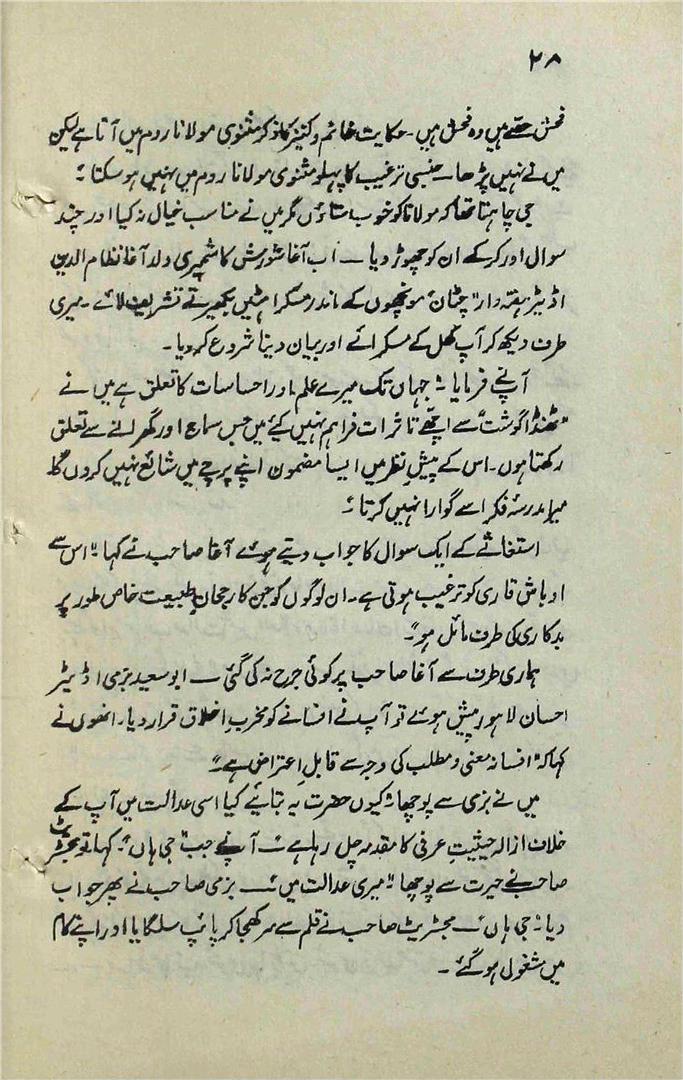 ۲۸
فحش حصّے ہیں وہ فحش ہیں۔ حکایت خانم و کنیز کا ذکر مثنوی مولانا روم میں آتا ہے لیکن
میں نے نہیں پڑھا۔ جنسی ترغیب کا پہلو مثنوی مولانا روم میں نہیں ہو سکتا"
جی چاہتا تھا کہ مولانا کو خوب ستاؤں مگر میں نے مناسب خیال نہ کیا اور چند
سوال اور کر کے ان کو چھوڑ دیا — اب آغا شورش کاشمیری ولد آغا نظام الدین
اڈیٹر ہفتہ وار "چٹان" مونچھوں کے اندر مسکراہٹیں بکھیرتے تشریف لائے۔ میری
طرف دیکھ کر آپ کھل کے مسکرائے اور بیان دینا شروع کر دیا۔
آپ نے فرمایا "جہاں تک میرے علم اور احساسات کا تعلق ہے میں نے
"ٹھنڈا گوشت" سے اچھے تاثرات فراہم نہیں کیے میں جس سماج اور گھرانے سے تعلق
رکھتا ہوں۔ اس کے پیش نظر میں ایسا مضمون اپنے پرچے میں شائع نہیں کروں گا۔
میرا مدرسۂ فکر اسے گوارا نہیں کرتا"
استغاثے کے ایک سوال کا جواب دیتے ہوئے آغا صاحب نے کہا "اس سے
اوباش قاری کو ترغیب ہوتی ہے۔ ان لوگوں کو جن کا رجحانِ طبیعت خاص طور پر
بدکاری کی طرف مائل ہو"۔
ہماری طرف سے آغا صاحب پر کوئی جرح نہ کی گئی — ابو سعید بزمی اڈیٹر
احسان لاہور پیش ہوئے تو آپ نے افسانے کو مخربِ اخلاق قرار دیا۔ انھوں نے
کہا کہ "افسانہ معنی و مطلب کی وجہ سے قابلِ اعتراض ہے"۔
میں نے بزمی سے پوچھا "کیوں حضرت یہ بتائیے کیا اسی عدالت میں آپ کے
خلاف ازالہ حیثیتِ عرفی کا مقدمہ چل رہا ہے"— آپ نے جب "جی ہاں"۔ کہا تو مجسٹریٹ
صاحب نے حیرت سے پوچھا "میری عدالت میں"— بزمی صاحب نے پھر جواب
دیا "جی ہاں"— مجسٹریٹ صاحب نے قلم سے سر کھجا کر پائپ سلگایا اور اپنے کام
میں مشغول ہو گئے۔